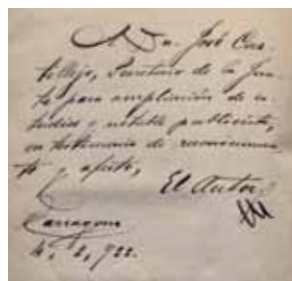 A Dn. José Cas-
tillejo, Secretario de la Jun-
ta para ampliación de es-
tudios y notable publicista,
en testimonio de reconocimien-
to y afecto,
El Autor
Tarragona
4, 2, 922.